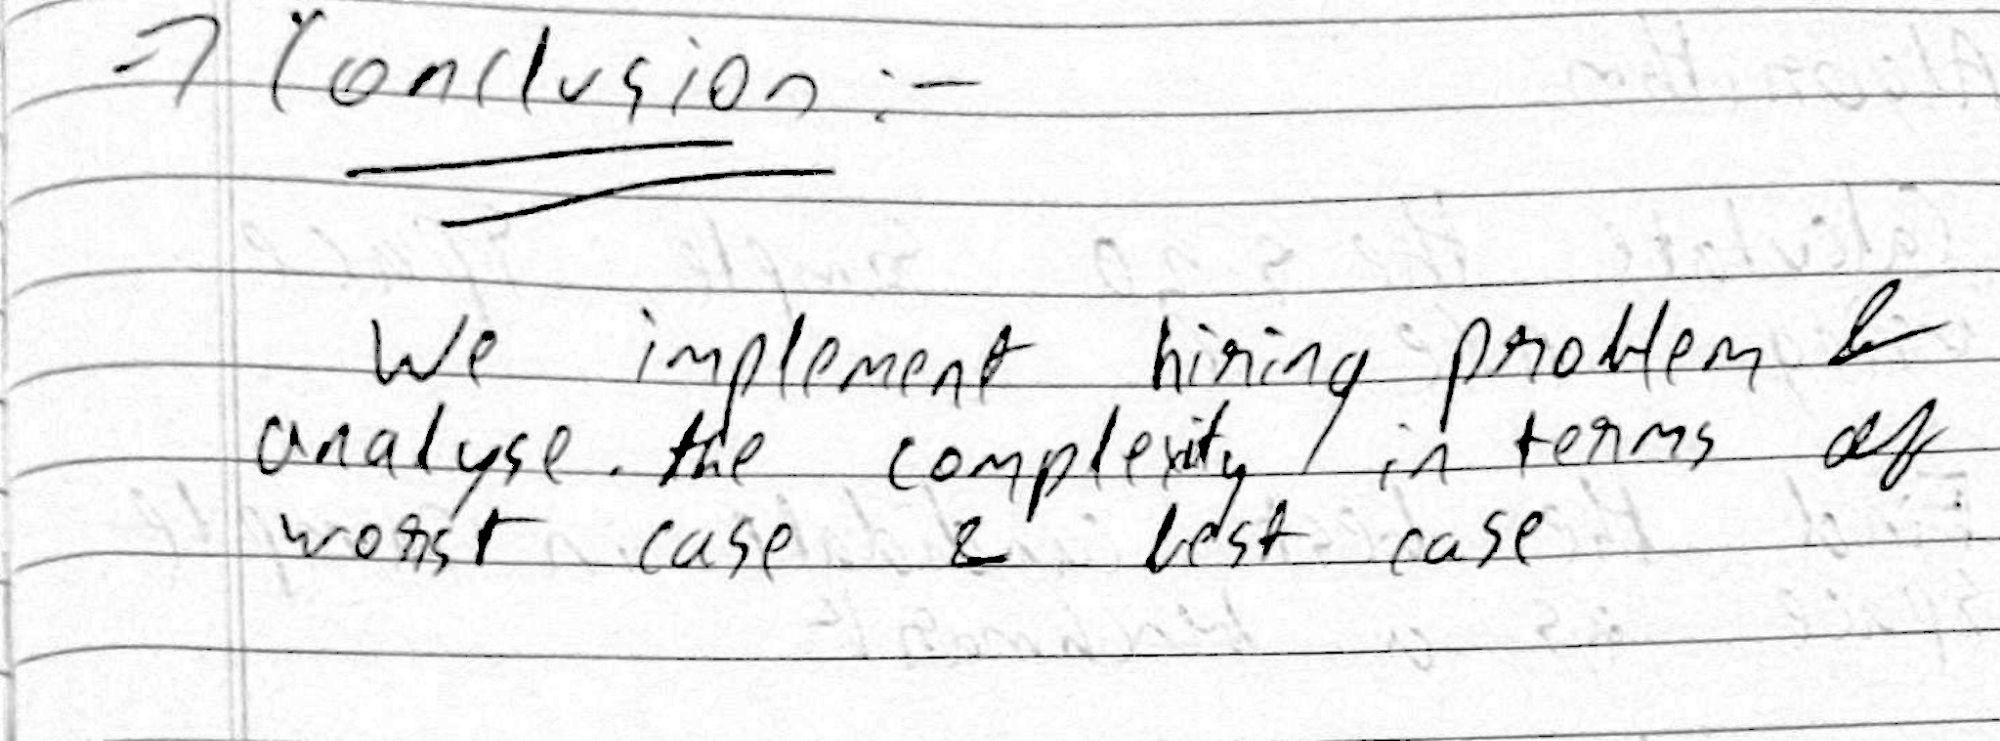 => Conclusion :-
We implement hiring problem &
analyse. the complexity in terms of
worst case & best case